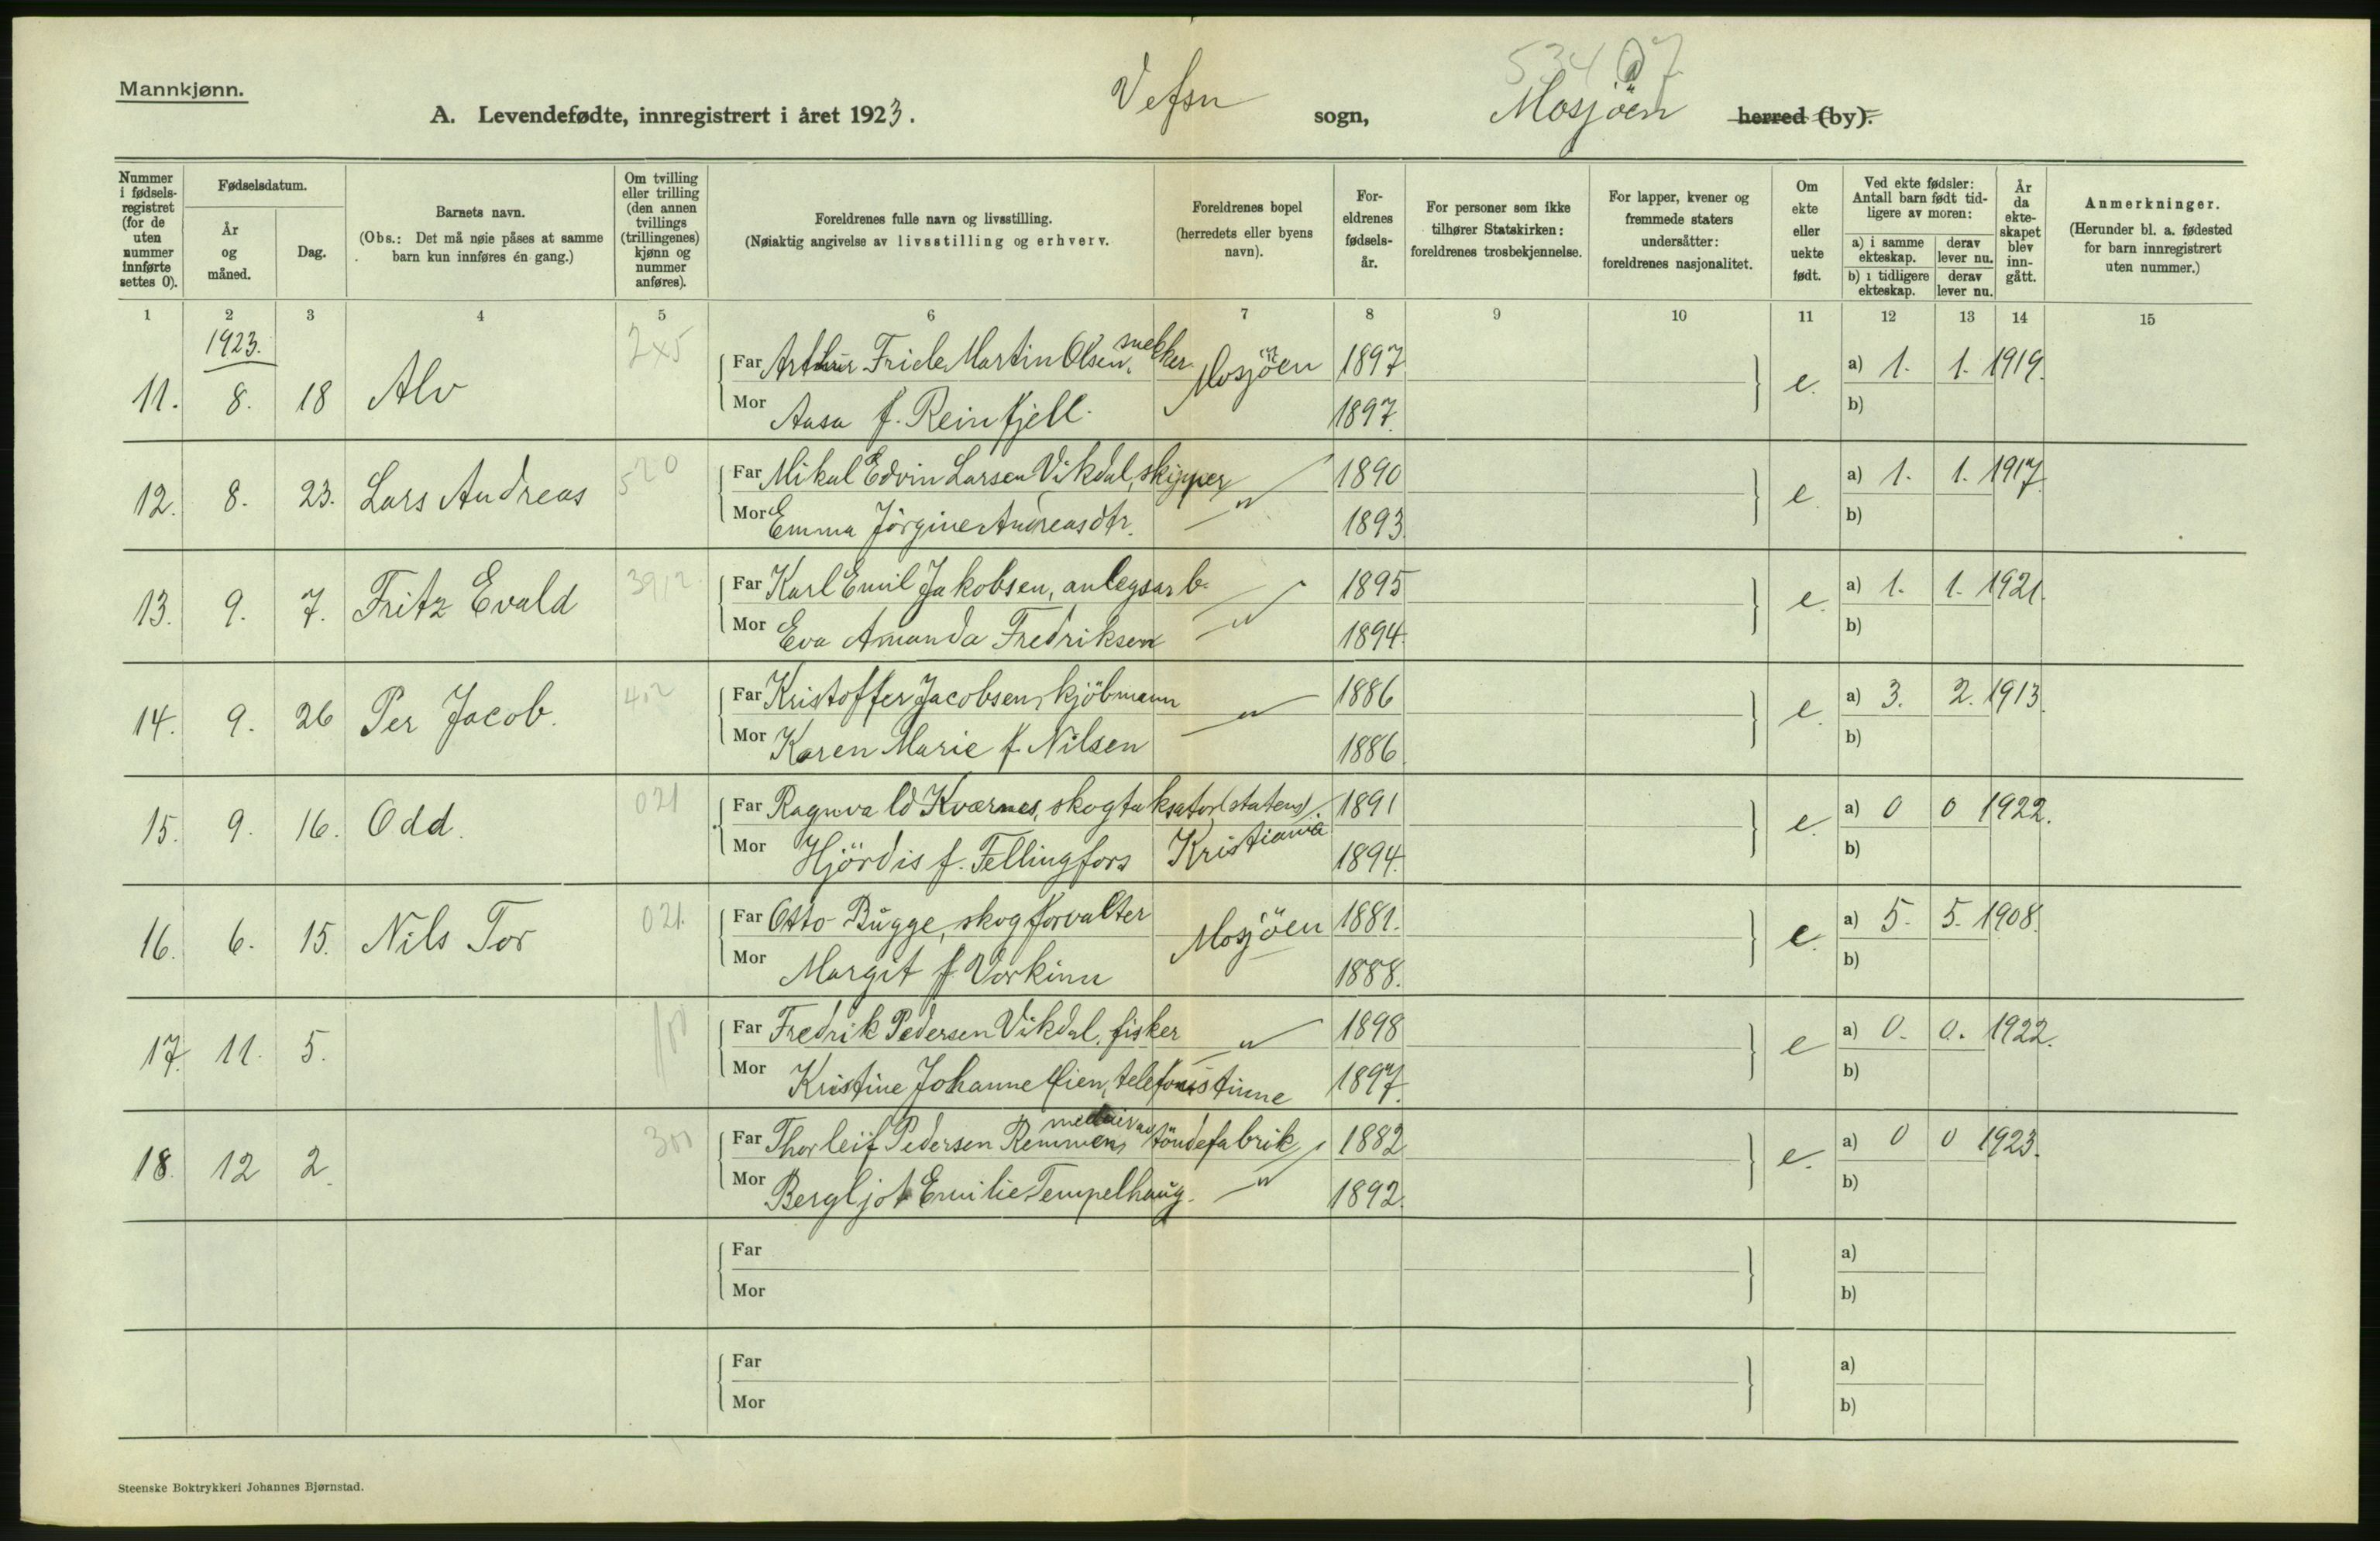 534 a 7
Mannkjønn.
A. Levendefødte, innregistrert i året 1923. Vefsn sogn, Mosjöen herred (by).
Nummer i fødsels-registret (for de uten nummer innførte settes 0).
Fødselsdatum.
År og måned.
Dag.
Barnets navn.
(Obs.: Det må nøie påses at samme barn kun innføres én gang.)
Om tvilling eller trilling (den annen tvillings (trillingenes) kjønn og nummer anføres).
Foreldrenes fulle navn og livsstilling.
(Nøiaktig angivelse av livsstilling og erhverv.
Foreldrenes bopel (herredets eller byens navn).
For-eldrenes fødsels-år.
For personer som ikke tilhører Statskirken: foreldrenes trosbekjennelse.
For lapper, kvener og fremmede staters undersåtter: foreldrenes nasjonalitet.
Om ekte eller uekte født.
Ved ekte fødsler: Antall barn født tid-ligere av moren:
a) i samme ekteskap. derav lever nu.
b) i tidligere ekteskap. derav lever nu.
År da ekte-skapet blev inn-gått.
Anmerkninger.
(Herunder bl. a. fødested for barn innregistrert uten nummer.)
1 2 3 4 5 6 7 8 9 10 11 12 13 14 15
1923.
11. 8. 18 Alv 2x5 Far Arthur Fride Martin Olsen, snekker Mosjöen 1897 e. a) 1. 1. 1919.
Mor Aasa f. Reinfjell. 1897. b)
12. 8. 23. Lars Andreas 520 Far Mikal Edvin Larsen Vikdal, skipper 1890 e. a) 1. 1. 1917.
Mor Emma Jörgine Andreasdtr. — " — 1893. b)
13. 9. 7. Fritz Evald 3912 Far Karl Emil Jakobsen, anlegsarb. 1895 e. a) 1. 1. 1921.
Mor Eva Amanda Fredriksen — " — 1894. b)
14. 9. 26 Per Jacob. 402 Far Kristoffer Jacobsen, kjöbmann — " — 1886 e. a) 3. 2. 1913.
Mor Karen Marie f. Nilsen 1886. b)
15. 9. 16. Odd. 021 Far Ragnvald Kværnes, skogtaksator (statens) 1891 e. a) 0 0 1922.
Mor Hjördis f. Fellingfors Kristiania 1894. b)
16. 6. 15. Nils Tor 021. Far Otto Bugge, skogforvalter Mosjöen 1881. e. a) 5. 5. 1908.
Mor Margit f. Vorkinn 1888. b)
17. 11. 5. 100 Far Fredrik Pedersen Vikdal, fisker — " — 1898 e a) 0. 0. 1922.
Mor Kristine Johanne Lien, telefonistinne 1897. b)
18. 12 2. 300 Far Thorleif Pedersen Remmen, medeier av töndefabrik 1882 e. a) 0 0 1923.
Mor Bergljot Emilie Tempelhaug. — " — 1892. b)
Far a)
Mor b)
Far a)
Mor b)
Steenske Boktrykkeri Johannes Bjørnstad.